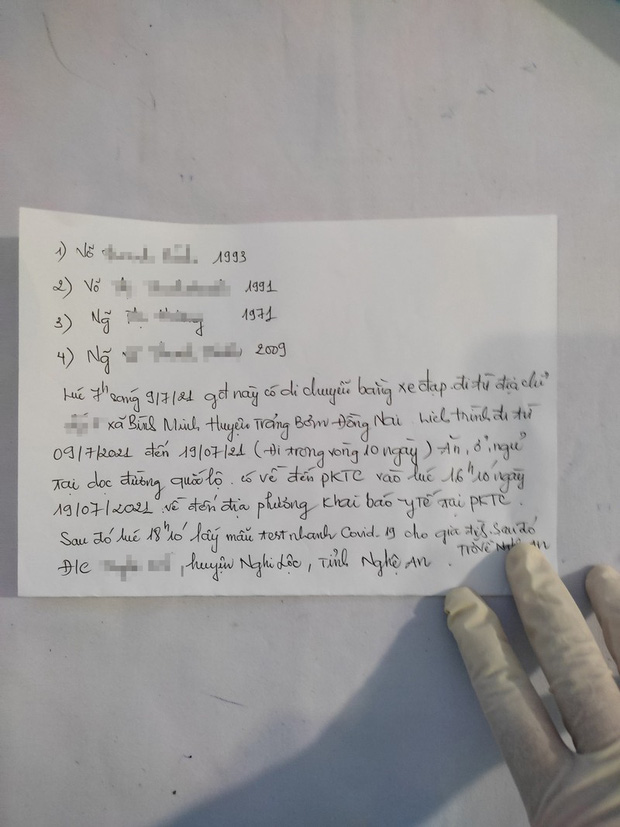 1) Võ 1993
2) Võ 1991
3) Ng̃ 1971
4) Ng̃ 2009
Lúc 7h sáng 9/7/21 gđ này có di chuyễn bằng xe đạp đi từ địa chỉ
xã Bình Minh Huyện Trảng Bơm Đồng Nai lịch trình đi từ
09/7/2021 đến 19/07/21 (Đi trong vòng 10 ngày) Ăn, ở, ngủ
tại dọc đường quốc lộ có về đến PKTC vào lúc 16h10' ngày
19/07/2021 về đến địa phương khai báo y tế tại PKTC.
Sau đó lúc 18h10' lấy mẫu test nhanh Covid-19 cho gia đình. Sau đó
trở về Nghệ An
Đ/C , huyện Nghi Lộc, Tỉnh Nghệ An.